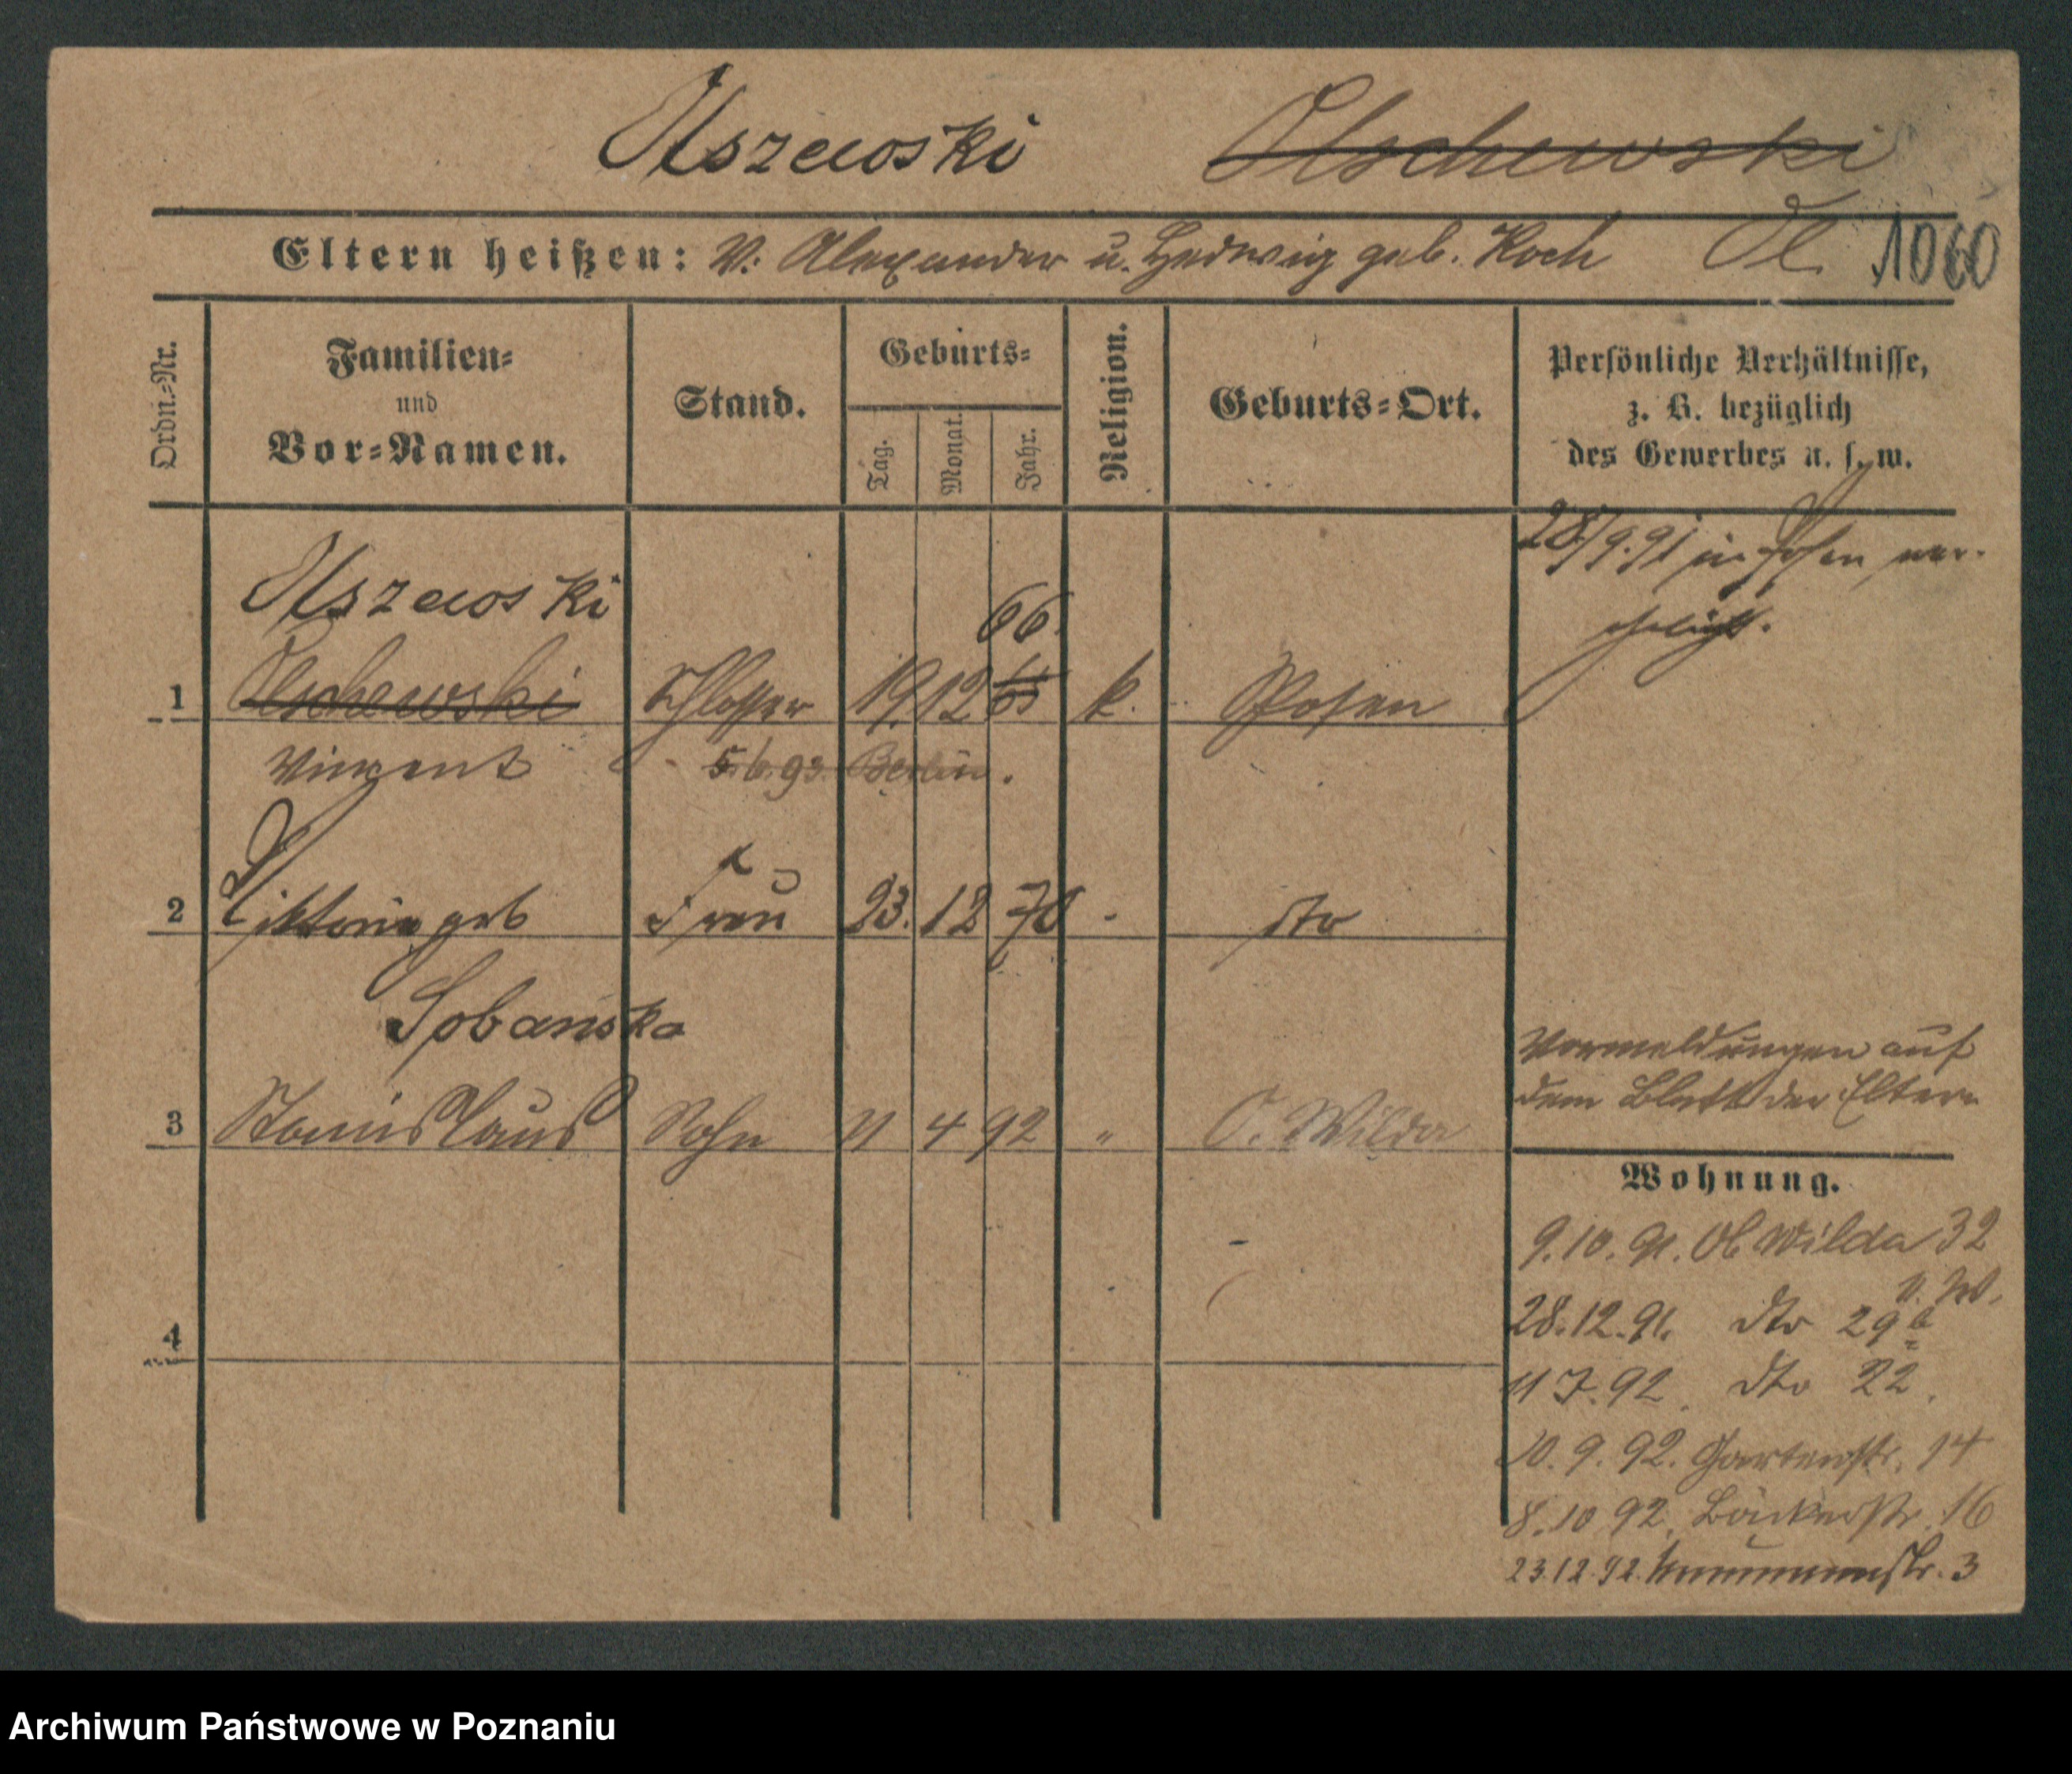 Olszewski Olschewski
Eltern heißen: V: Alexander u. Hedwig geb. Koch Ol. 1060
Ordn.-Nr.
Familien-
und
Vor-Namen.
Stand.
Geburts-
Tag.
Monat.
Jahr.
Religion.
Geburts-Ort.
Persönliche Verhältnisse,
z. B. bezüglich
des Gewerbes u. s. w.
28/9.91 in Posen ver-
ehelicht.
Olszewski
66.
1 Olschewski Schlosser 19. 12 65 k. Posen
Vinzent 5.6.93. Berlin.
2 Viktoria geb Frau 23. 12 70 - dto
Sobanska
Vormeldungen auf
dem Blatt der Eltern
3 Stanislaus Sohn 11 4 92 " O. Wilda
Wohnung.
9.10.91. Ob Wilda 32
28.12.91. dto 29b
11 7.92. dto 22.
4
10.9.92. Gartenstr. 14
8.10 92. Bäckerstr. 16
23.12.92. str. 3
Archiwum Państwowe w Poznaniu